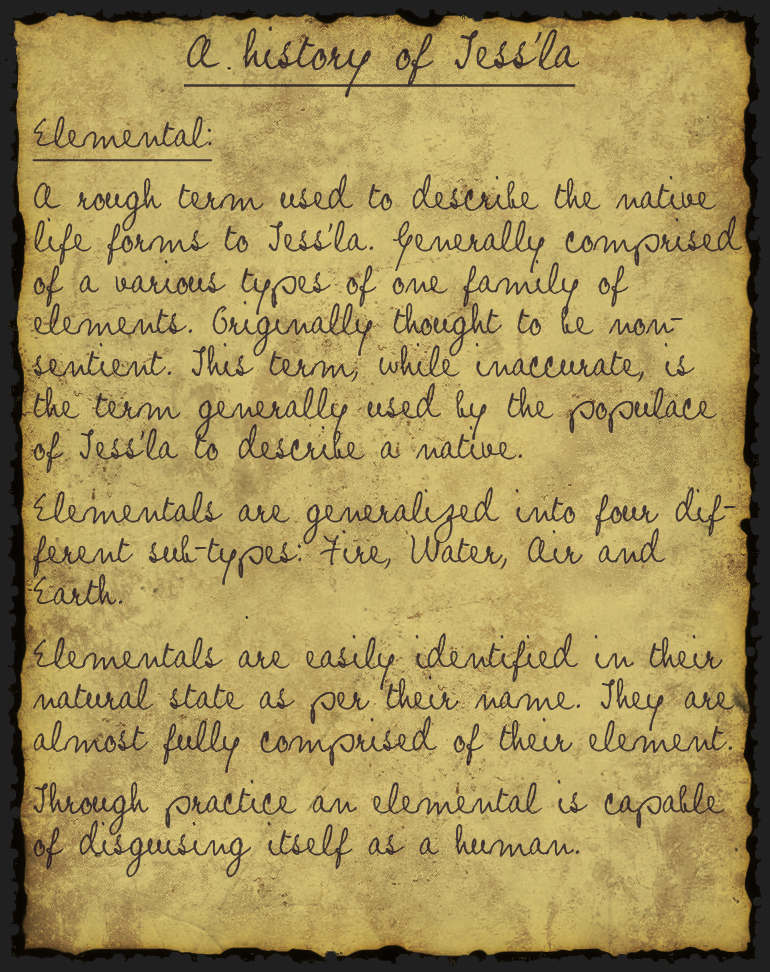 A history of Tess'la
Elemental:
A rough term used to describe the native
life forms to Tess'la. Generally comprised
of a various types of one family of
elements. Originally thought to be non-
sentient. This term, while inaccurate, is
the term generally used by the populace
of Tess'la to describe a native.
Elementals are generalized into four dif-
ferent sub-types: Fire, Water, Air and
Earth.
Elementals are easily identified in their
natural state as per their name. They are
almost fully comprised of their element.
Through practice an elemental is capable
of disguising itself as a human.